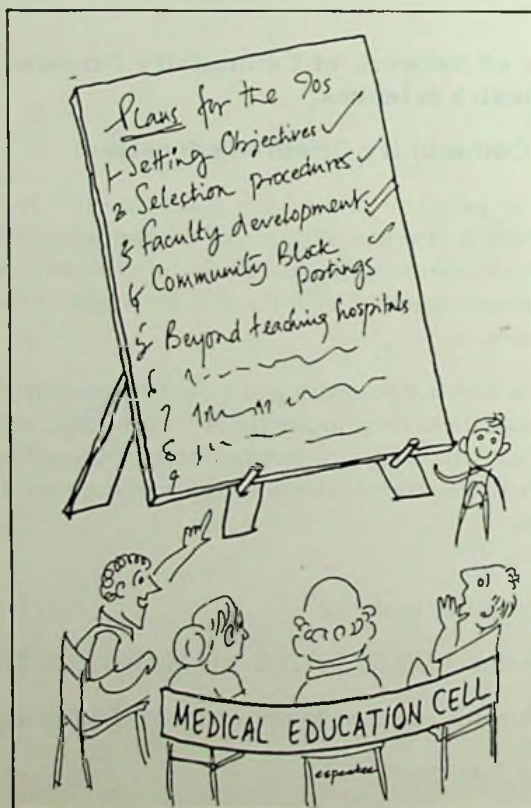 Plans for the 90s
1 Setting Objectives ✓
2 Selection procedures ✓
3 Faculty development ✓
4 Community Block ✓
Postings
5 Beyond teaching hospitals
6
7
8
9
MEDICAL EDUCATION CELL